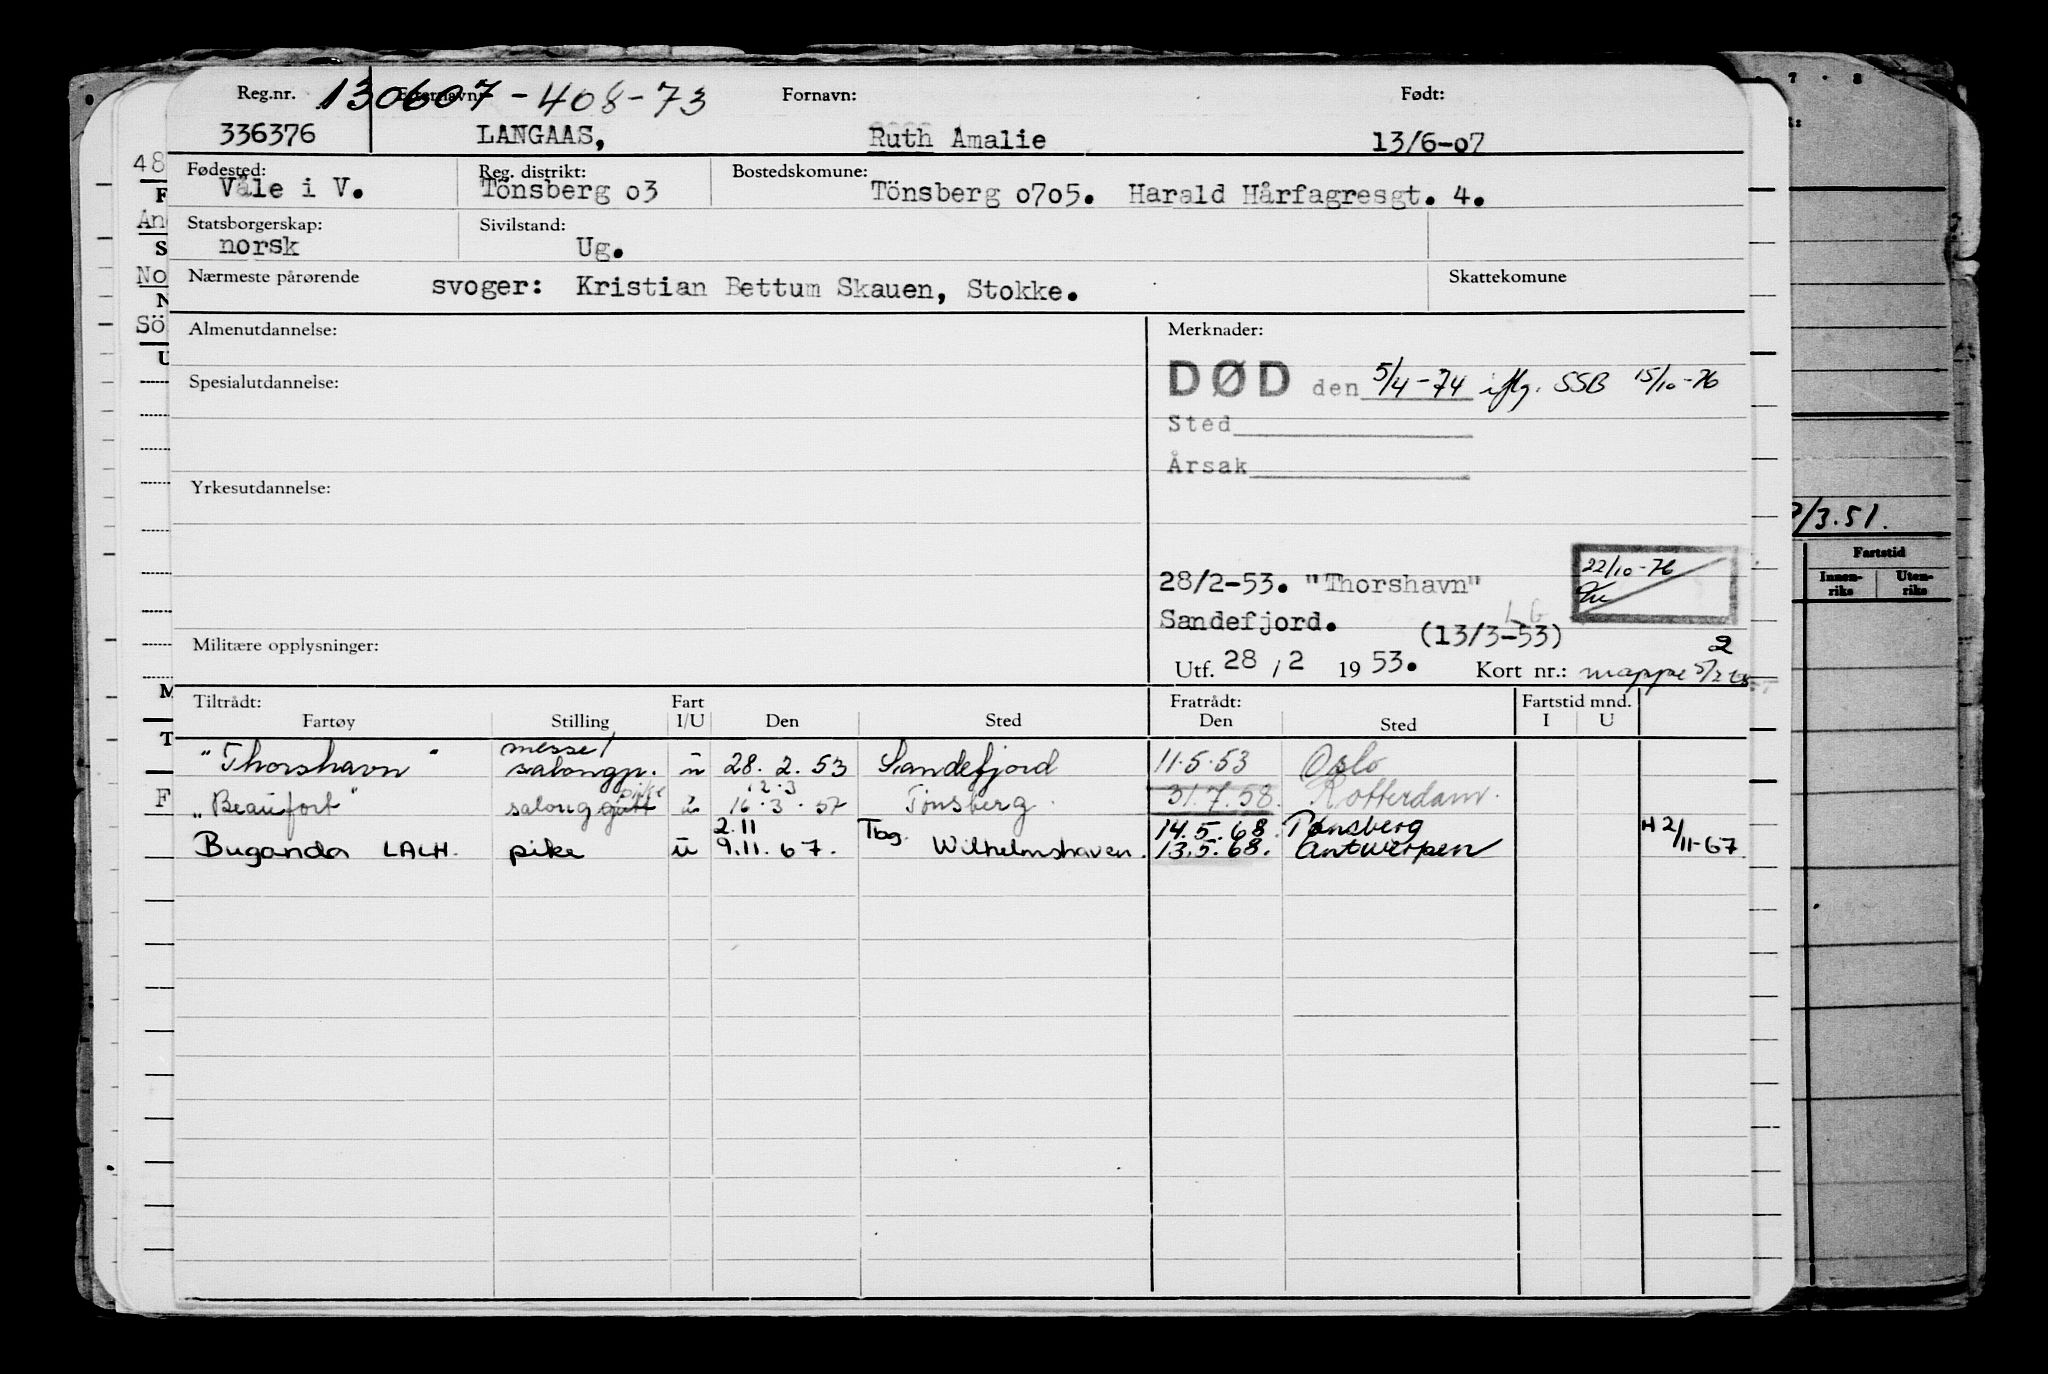 Reg.nr. 130607-408-73 Etternavn: Fornavn: Født:
336376 LANGAAS, Ruth Amalie 13/6-07
Fødested: Reg. distrikt: Bostedskomune:
Våle i V. Tönsberg 03 Tönsberg 0705. Harald Hårfagresgt. 4.
Statsborgerskap: Sivilstand:
norsk Ug.
Nærmeste pårørende svoger: Kristian Bettum Skauen, Stokke. Skattekomune
Almenutdannelse: Merknader:
Spesialutdannelse: DØD den 5/4-74 iflg. SSB 15/10-76
Sted
Årsak
Yrkesutdannelse:
22/10-76
28/2-53. "Thorshavn"
Sandefjord. (13/3-53)
Militære opplysninger: 2
Utf. 28 / 2 1953. Kort nr.: mappe
Tiltrådt: Fart Fratrådt: Fartstid mnd.
Fartøy Stilling I/U Den Sted Den Sted I U
messe/
"Thorshavn" salongp. u 28. 2. 53 Sandefjord 11.5.53 Oslo
pike 12.3
"Beaufort" salonggutt u 16.3.57 Tønsberg. 31.7.58. Rotterdam.
2.11 Tbg. 14.5.68. Tønsberg H 2/11-67
Buganda LALH. pike u 9.11.67. Wilhelmshaven. 13.5.68. Antwerpen
48
F
An
S
No
N
Sö
U
M
T
F
7 . 8
/3.51.
Fartstid
Innen- Uten-
riks riks